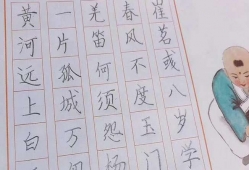 黄河远上白
一片孤城万
羌笛何须怨杨
春风不度玉门
崔茗或八岁学